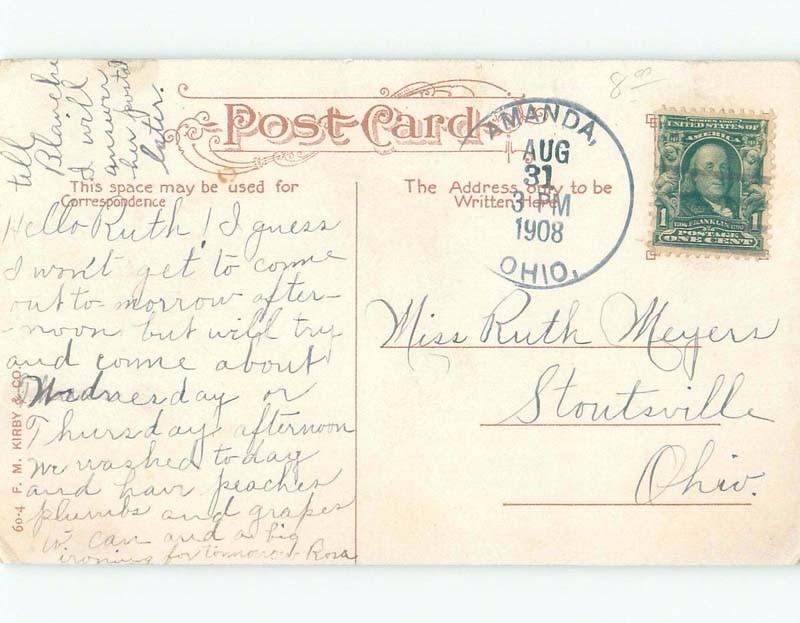 tell
Blanche
I will
answer
her postal
later.
8.00
Post Card
AMANDA,
AUG
31
3 PM
1908
OHIO.
UNITED STATES OF
AMERICA
1 1
FRANKLIN
POSTAGE
ONE CENT
This space may be used for
Correspondence
The Address only to be
Written Here
Hello Ruth! I guess
I won't get to come
out to-morrow after-
-noon but will try
and come about
Wednesday or
Thursday afternoon
We washed today
and have peaches
plumbs and grapes
to can and a big
ironing for tomorrow Rosa
Miss Ruth Meyers
Stoutsville
Ohio.
60-4 F. M. KIRBY & CO.